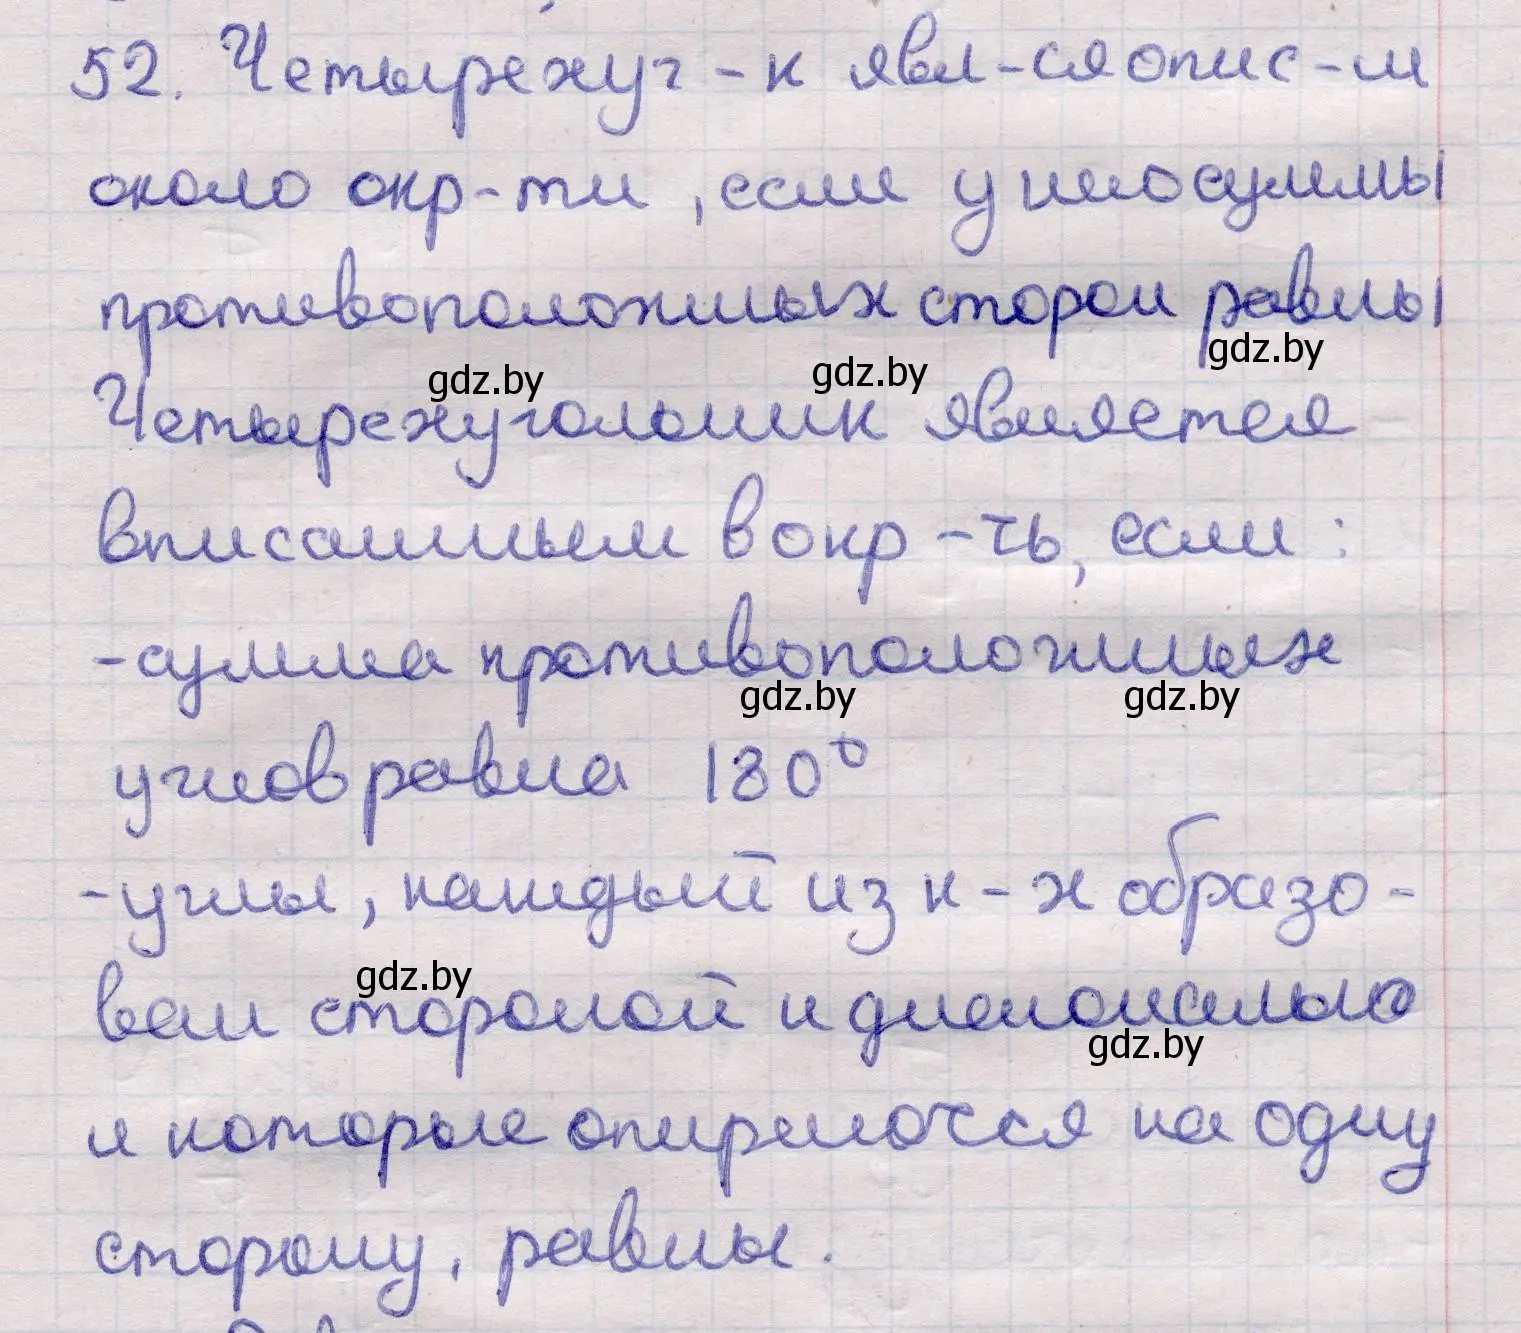 52. Четырехуг-к явл-ся опис-м
около окр-ти, если у него суммы
противоположных сторон равны
gdz.by gdz.by gdz.by
Четырехугольник является
вписанным в окр-ть, если:
-сумма противоположных
gdz.by gdz.by
углов равна 180°
-углы, каждый из к-х образо-
gdz.by
ван стороной и диагональю
gdz.by
и которые опираются на одну
сторону, равны.